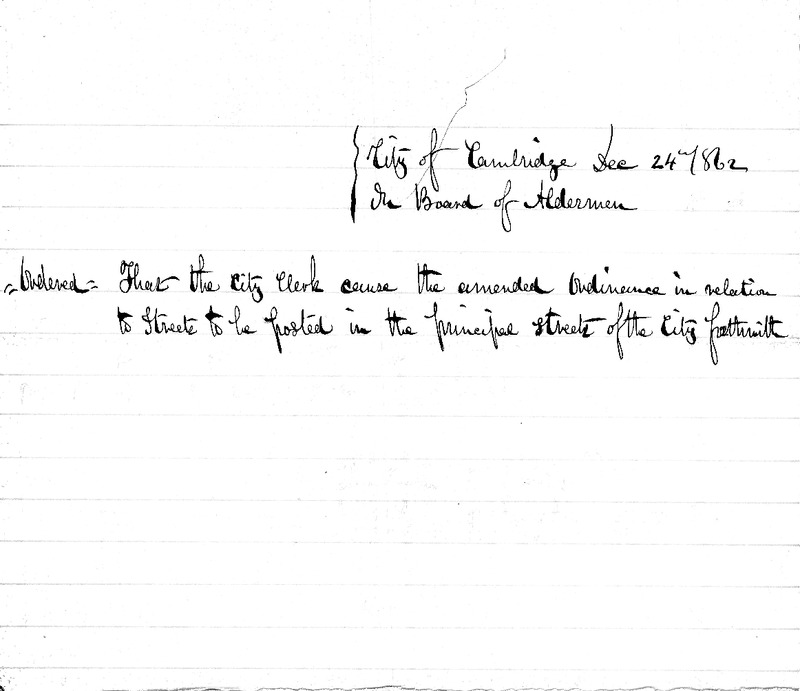 City of Cambridge Dec 24th 1862
In Board of Aldermen
Ordered = That the City Clerk cause the amended Ordinance in relation
to Streets to be posted in the principal streets of the City forthwith